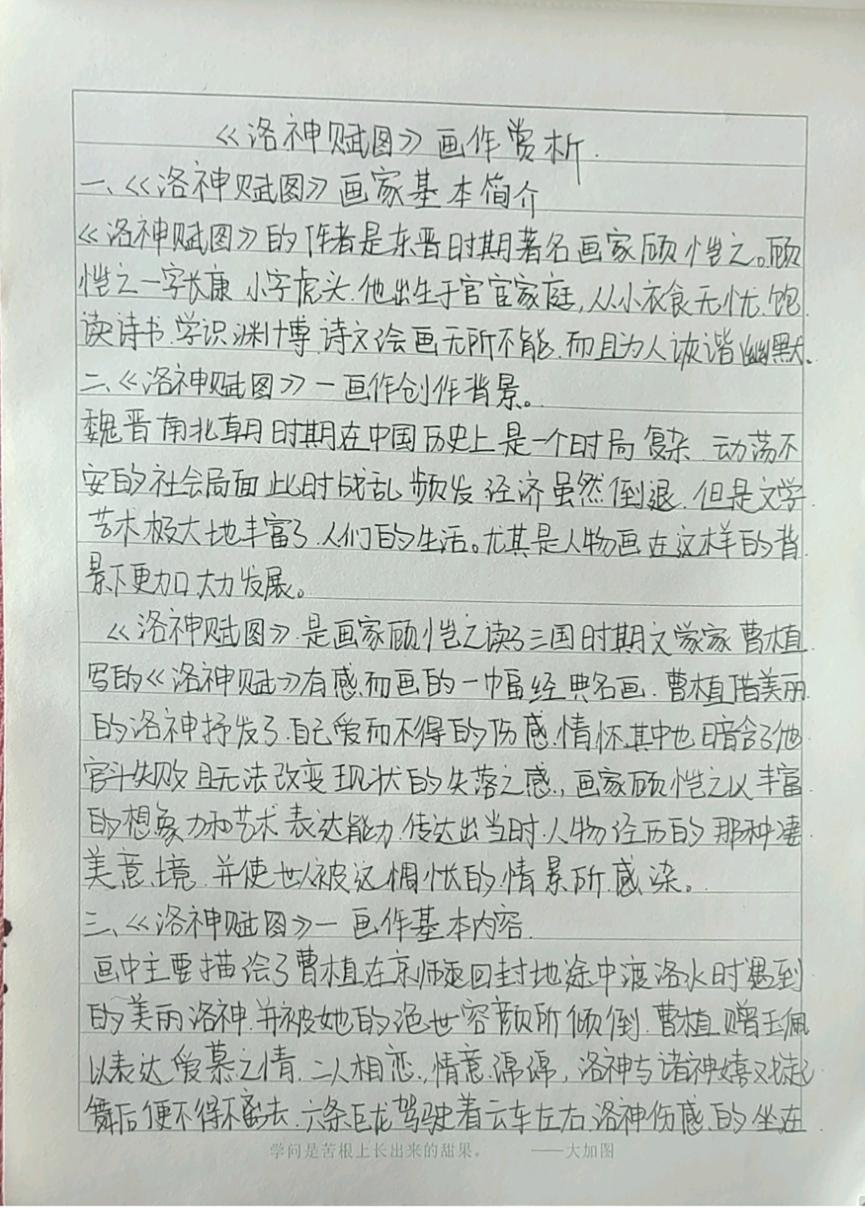 《洛神赋图》画作赏析.
一、《洛神赋图》画家基本简介
《洛神赋图》的作者是东晋时期著名画家顾恺之。顾
恺之一字长康 小字虎头.他出生于官宦家庭,从小衣食无忧.饱
读诗书.学识渊博.诗文绘画无所不能.而且为人诙谐幽默.
二、《洛神赋图》一画作创作背景。
魏晋南北朝时期在中国历史上是一个时局复杂 动荡不
安的社会局面 此时战乱频发 经济虽然倒退.但是文学
艺术极大地丰富了.人们的生活。尤其是人物画在这样的背
景下更加大力发展。
《洛神赋图》.是画家顾恺之读了三国时期文学家家曹植
写的《洛神赋》有感而画的一幅经典名画.曹植借美丽
的洛神抒发了.自己爱而不得的伤感.情怀.其中也暗含了他
官斗失败且无法改变现状的失落之感.,画家顾恺之以丰富
的想象力和艺术表达能力.传达出当时.人物经历的那种凄
美意境.并使世人被这惆怅的情景所感染。
三、《洛神赋图》一画作基本内容.
画中主要描绘了曹植在京师返回封地途中渡洛水时遇到
的美丽洛神.并被她的绝世容颜所倾倒.曹植赠玉佩
以表达爱慕之情.二人相恋.,情意绵绵,洛神与诸神嬉戏起
舞后便不得不离去.六条巨龙驾驶着云车左右.洛神伤感的坐在
学问是苦根上长出来的甜果。 ——大加图